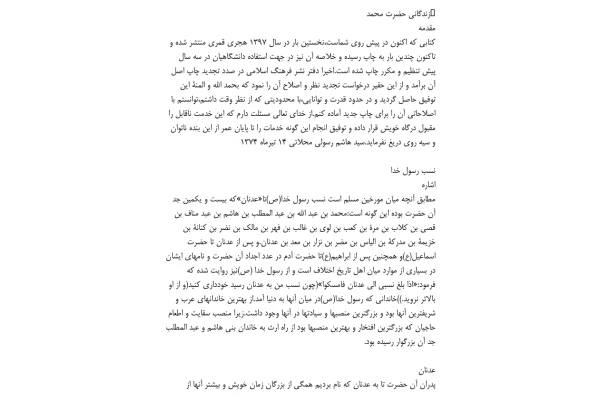 زندگانی حضرت محمد
مقدمه
کتابی که اکنون در پیش روی شماست،نخستین بار در سال ۱۳۹۷ هجری قمری منتشر شده و
تاکنون چندین بار به چاپ رسیده و خلاصه آن نیز در جهت استفاده دانشگاهیان در سه سال
پیش تنظیم و مکرر چاپ شده است.اخیرا دفتر نشر فرهنگ اسلامی در صدد تجدید چاپ اصل
آن برآمد و از این حقیر درخواست تجدید نظر و اصلاح آن را نمود که بحمد الله و المنة این
توفیق حاصل گردید و در حدود قدرت و توانایی،با محدودیتی که از نظر وقت داشتم،توانستم با
اصلاحاتی آن را برای چاپ جدید آماده کنم.از خدای تعالی مسئلت دارم که این خدمت ناقابل را
مقبول درگاه خویش قرار داده و توفیق انجام این گونه خدمات را تا پایان عمر از این بنده ناتوان
و سیه روی دریغ نفرماید.سید هاشم رسولی محلاتی ۱۴ تیرماه ۱۳۷۴
نسب رسول خدا
اشاره
مطابق آنچه میان مورخین مسلم است نسب رسول خدا(ص)تا«عدنان»که بیست و یکمین جد
آن حضرت بوده این گونه است:محمد بن عبد الله بن عبد المطلب بن هاشم بن عبد مناف بن
قصی بن کلاب بن مرة بن کعب بن لوی بن غالب بن فهر بن مالک بن نضر بن کنانة بن
خزیمة بن مدرکة بن الیاس بن مضر بن نزار بن معد بن عدنان.و پس از عدنان تا حضرت
اسماعیل(ع)و همچنین پس از ابراهیم(ع)تا حضرت آدم در عدد اجداد آن حضرت و نامهای ایشان
در بسیاری از موارد میان اهل تاریخ اختلاف است و از رسول خدا (ص)نیز روایت شده که
فرمود:«اذا بلغ نسبی الی عدنان فامسکوا»(چون نسب من به عدنان رسید خودداری کنید(و از او
بالاتر نروید.))خاندانی که رسول خدا(ص)در میان آنها به دنیا آمد.از بهترین خاندانهای عرب و
شریفترین آنها بود و بزرگترین منصبها و سیادتها در آنها وجود داشت.زیرا منصب سقایت و اطعام
حاجیان که بزرگترین افتخار و بهترین منصبها بود از راه ارث به خاندان بنی هاشم و عبد المطلب
جد آن بزرگوار رسیده بود.
عدنان
پدران آن حضرت تا به عدنان که نام بردیم همگی از بزرگان زمان خویش و بیشتر آنها از